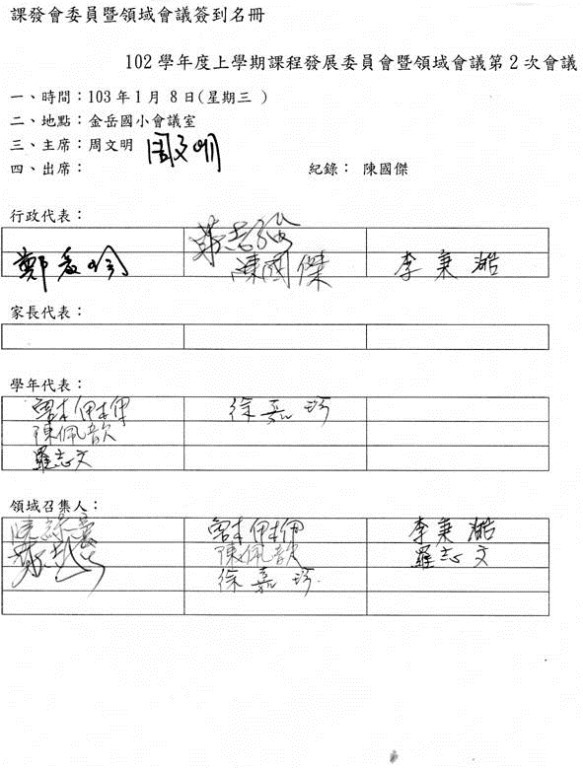 課發會委員暨領域會議簽到名冊
102 學年度上學期課程發展委員會暨領域會議第 2 次會議
一、時間：103 年 1 月 8 日(星期三 )
二、地點：金岳國小會議室
三、主席：周文明 周文明
四、出席： 紀錄： 陳國傑
行政代表：
陳國傑 李秉澔
家長代表：
學年代表：
徐嘉巧
陳佩歆
羅志文
領域召集人：
李秉澔
陳佩歆 羅志文
徐嘉巧